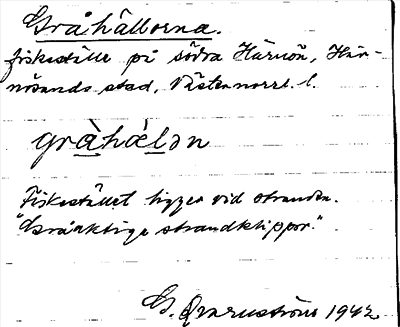 Gråhällorna.
fiskeställe på södra Härnön, Här-
nösands stad, Västernorrl. l.
gråhæ̀lən
Fiskestället ligger vid stranden.
"Gråaktiga strandklippor."
G. Qvarnström 1942